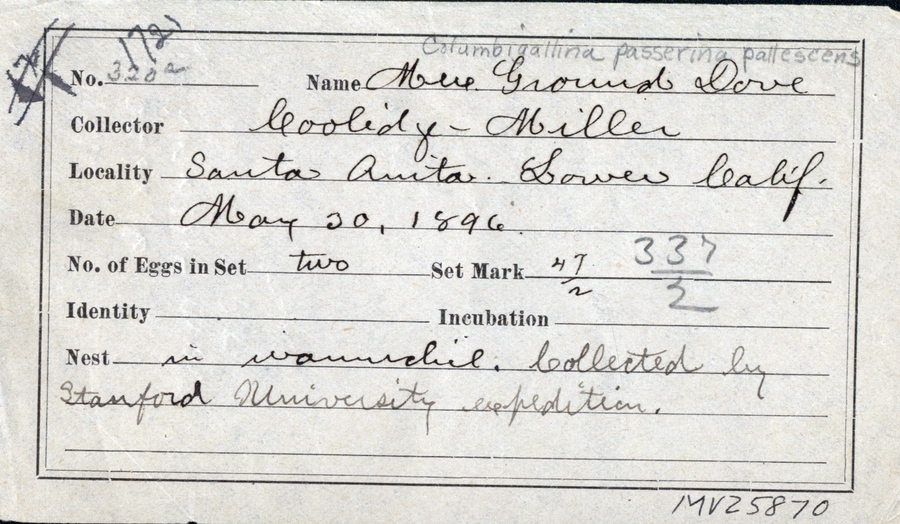 Columbigallina passerina pallescens
172)
No. 320a Name Mex. Ground Dove
Collector Coolidge - Miller
Locality Santa Anita. Lower Calif.
Date May 20, 1896.
No. of Eggs in Set two Set Mark 47/2 337/2
Identity Incubation
Nest in Collected by
Stanford University expedition.
MVZ5870